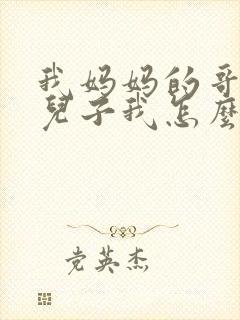 我妈妈的哥
儿子我怎麼
党英杰